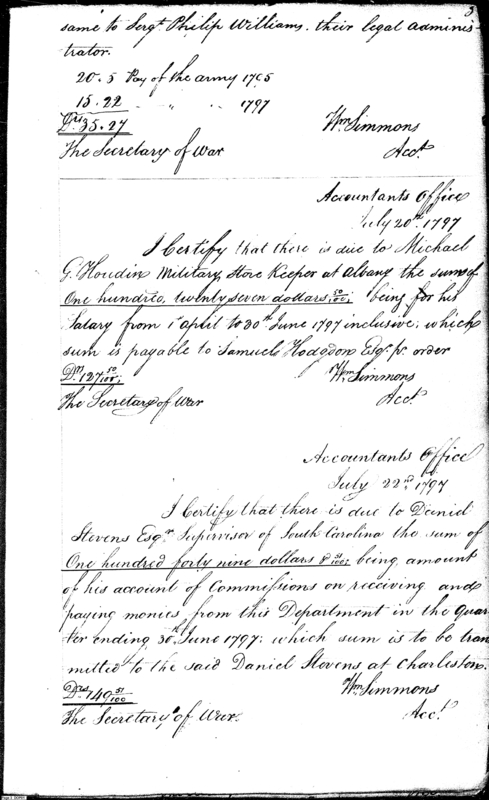 3
same to Sergt. Philip Williams. their legal adminis-
trator.
20.5 Pay of the army 1795
15.22 " " " 1797
Drs 35.27
Wm. Simmons
The Secretary of War
Acct.
Accountants Office
July 20th. 1797
I Certify that there is due to Michael
G. Houdin Military Store Keeper at Albany the sum of
One hundred, twenty seven dollars 50/100; being for his
Salary from 1st April to 30th June 1797 inclusive; which
sum is payable to Samuel Hodgdon Esqr. pr. order
Drs. 127 50/100;
Wm. Simmons
The Secretary of War
Acct.
Accountants Office
July 22nd. 1797
I Certify that there is due to Daniel
Stevens Esqr. Supervisor of South Carolina the sum of
One hundred forty nine dollars & 51/100; being amount
of his account of Commissions on receiving and
paying monies from this Department in the Quar-
ter ending 30th. June 1797: which sum is to be tran
mitted to the said Daniel Stevens at Charleston.
Drs. 149 51/100
Wm. Simmons
The Secretary of War.
Acct.